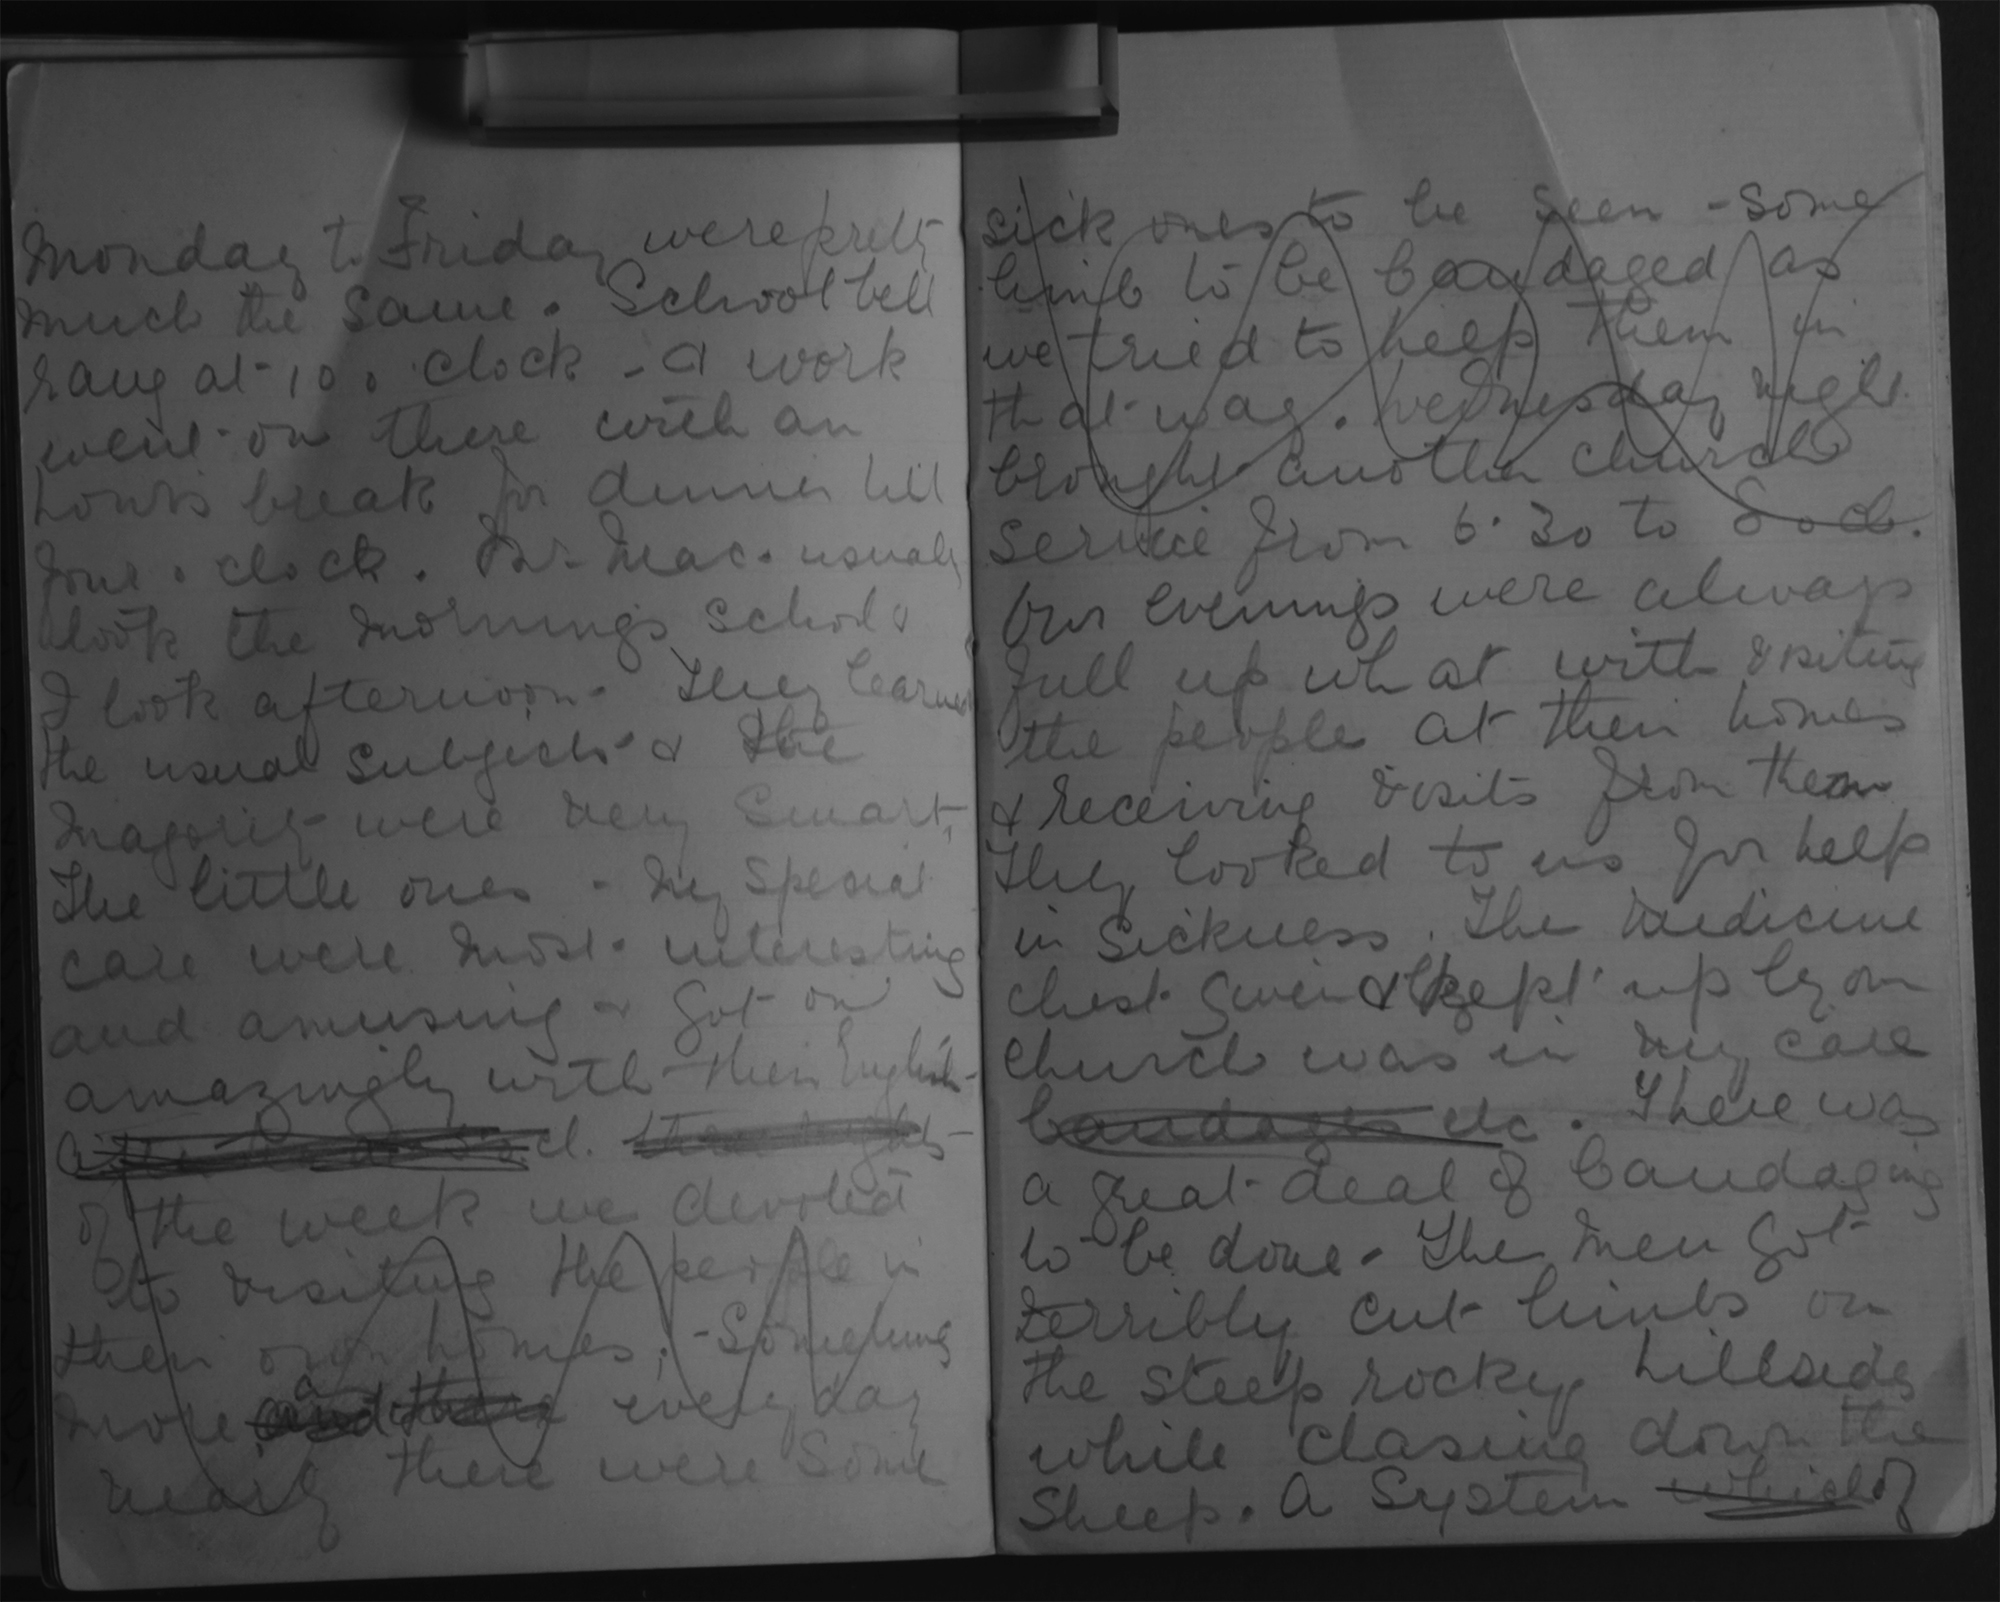 Monday to Friday were pretty
much the same. School bell
rang at 10 o'clock - & work
went on there with an
hours break for dinner till
four o'clock. Mr Mac. usually
took the mornings school &
I took afternoon. They learned
the usual subjects & the
majority were very smart,
The little ones - my special
care were most interesting
and amusing & got on
amazingly with their English -
of the week we devoted
to visiting the people in
their own homes, - Something
more and there everyday
nearly there were some
sick ones to be seen - some
limb to be bandaged as
we tried to help them in
that way. Wednesday night
brought another church
service from 6.30 to 8 o cl.
Our evenings were always
full up what with visiting
the people at their homes
& receiving visits from them
They looked to us for help
in sickness. The medicine
chest given & kept up by our
church was in my care
bandages etc. There was
a great deal of bandaging
to be done. The men got
terribly cut limbs on
the steep rocky hillsides
while chasing down the
sheep. A system which of